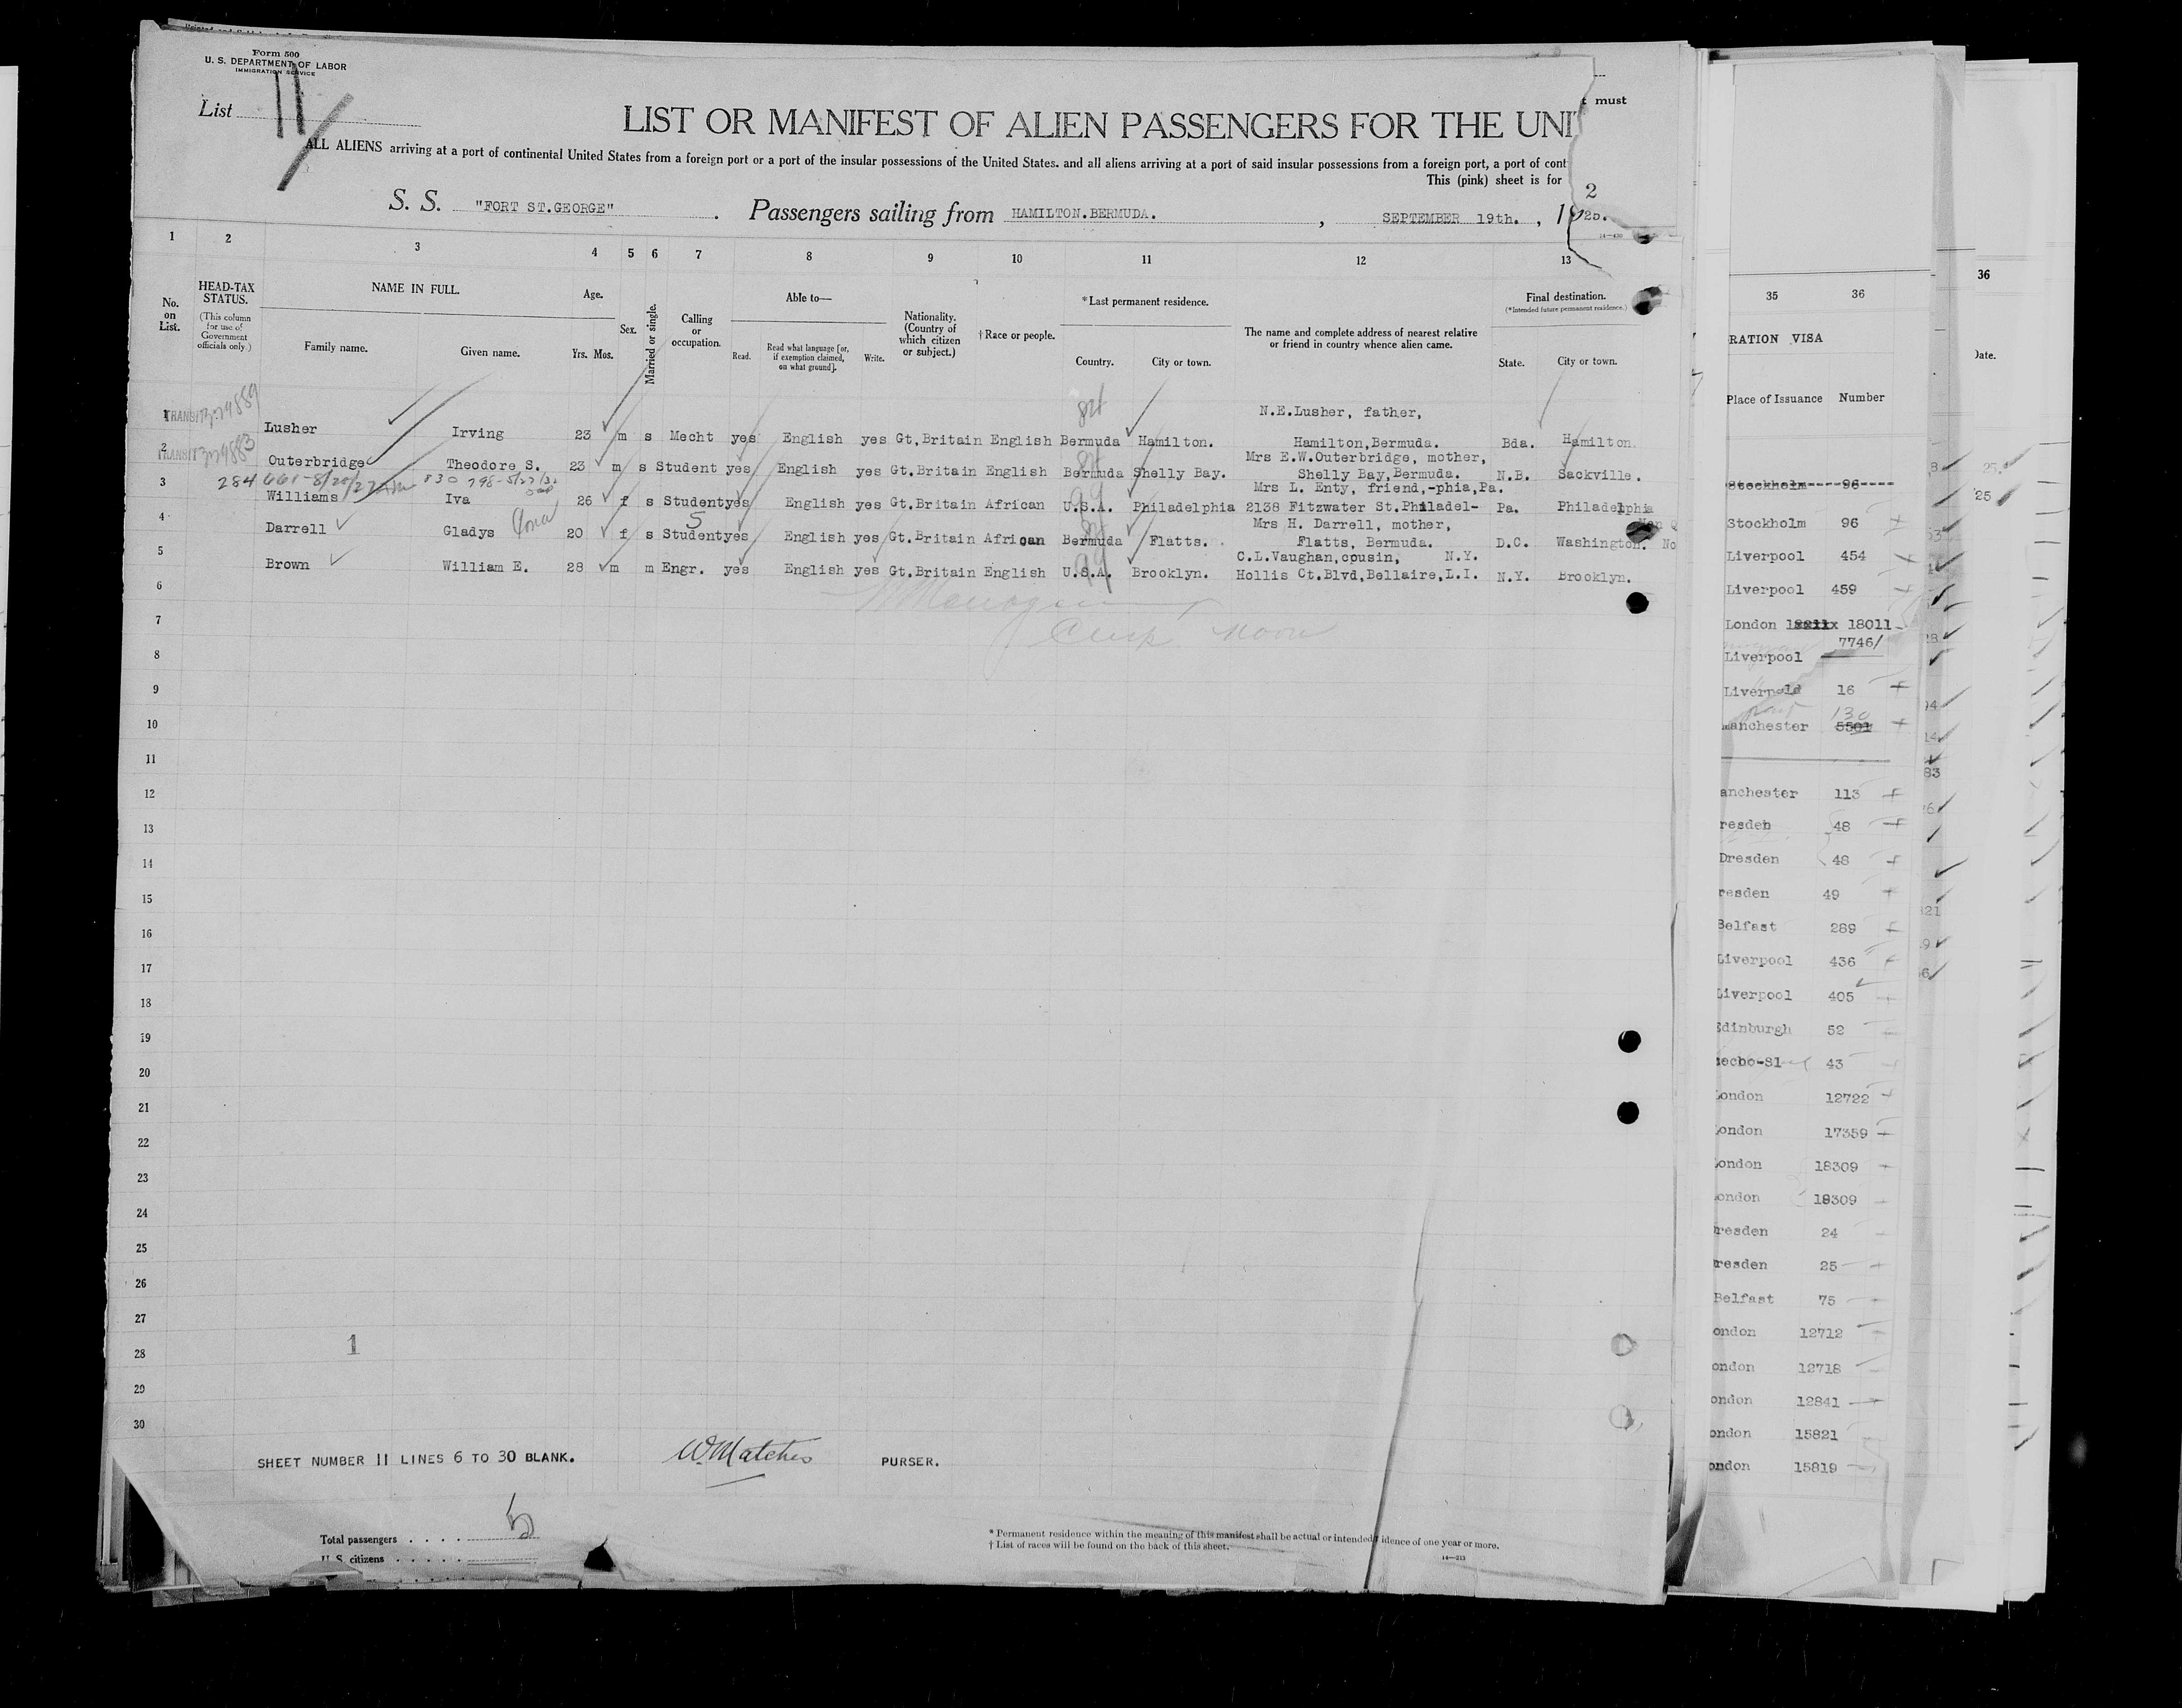 Form 500
U. S. DEPARTMENT OF LABOR
IMMIGRATION SERVICE
List 11
must
LIST OR MANIFEST OF ALIEN PASSENGERS FOR THE UNI
ALL ALIENS arriving at a port of continental United States from a foreign port or a port of the insular possessions of the United States. and all aliens arriving at a port of said insular possessions from a foreign port, a port of cont
This (pink) sheet is for
2
S. S. "FORT ST.GEORGE" . Passengers sailing from HAMILTON.BERMUDA. , SEPTEMBER 19th. , 1925.
1 2 3 4 5 6 7 8 9 10 11 12 13
No. on List.
HEAD-TAX STATUS.
(This column for use of Government officials only.)
NAME IN FULL.
Family name. Given name.
Age.
Yrs. Mos.
Sex.
Married or single.
Calling or occupation.
Able to—
Read. Read what language [or, if exemption claimed, on what ground]. Write.
Nationality. (Country of which citizen or subject.)
† Race or people.
*Last permanent residence.
Country. City or town.
The name and complete address of nearest relative or friend in country whence alien came.
Final destination.
(*Intended future permanent residence.)
State. City or town.
N.E.Lusher, father,
1 TRANSIT Lusher Irving 23 m s Mecht yes English yes Gt,Britain English Bermuda Hamilton. Hamilton,Bermuda. Bda. Hamilton.
Mrs E.W.Outerbridge, mother,
2 TRANSIT Outerbridge Theodore S. 23 m s Student yes English yes Gt.Britain English Bermuda Shelly Bay. Shelly Bay,Bermuda. N.B. Sackville.
Mrs L. Enty, friend,-phia,Pa.
3 Williams Iva 26 f s Student yes English yes Gt.Britain African U.S.A. Philadelphia 2138 Fitzwater St.Philadel- Pa. Philadelphia
Mrs H. Darrell, mother,
4 Darrell Gladys 20 f s Student yes English yes Gt.Britain African Bermuda Flatts. Flatts, Bermuda. D.C. Washington. No
C.L.Vaughan,cousin, N.Y.
5 Brown William E. 28 m m Engr. yes English yes Gt.Britain English U.S.A. Brooklyn. Hollis Ct.Blvd,Bellaire,L.I. N.Y. Brooklyn.
6
7
8
9
10
11
12
13
14
15
16
17
18
19
20
21
22
23
24
25
26
27
28
29
30
1
SHEET NUMBER 11 LINES 6 TO 30 BLANK. W.Matches PURSER.
Total passengers . . . . 5
U. S. citizens . . . . .
* Permanent residence within the meaning of this manifest shall be actual or intended idence of one year or more.
† List of races will be found on the back of this sheet.
14—213
35 36
RATION VISA
Place of Issuance Number
Stockholm 96
Stockholm 96
Liverpool 454
Liverpool 459
London 18011
7746/
Liverpool
Liverpold 16
130
manchester 5501
anchester 113
resden 48
Dresden 48
resden 49
Belfast 289
Liverpool 436
Liverpool 405
Edinburgh 52
43
London 12722
London 17359
London 18309
ondon 18309
resden 24
resden 25
Belfast 75
ondon 12712
ondon 12718
ondon 12841
ondon 15821
ondon 15819
36
Date.
25